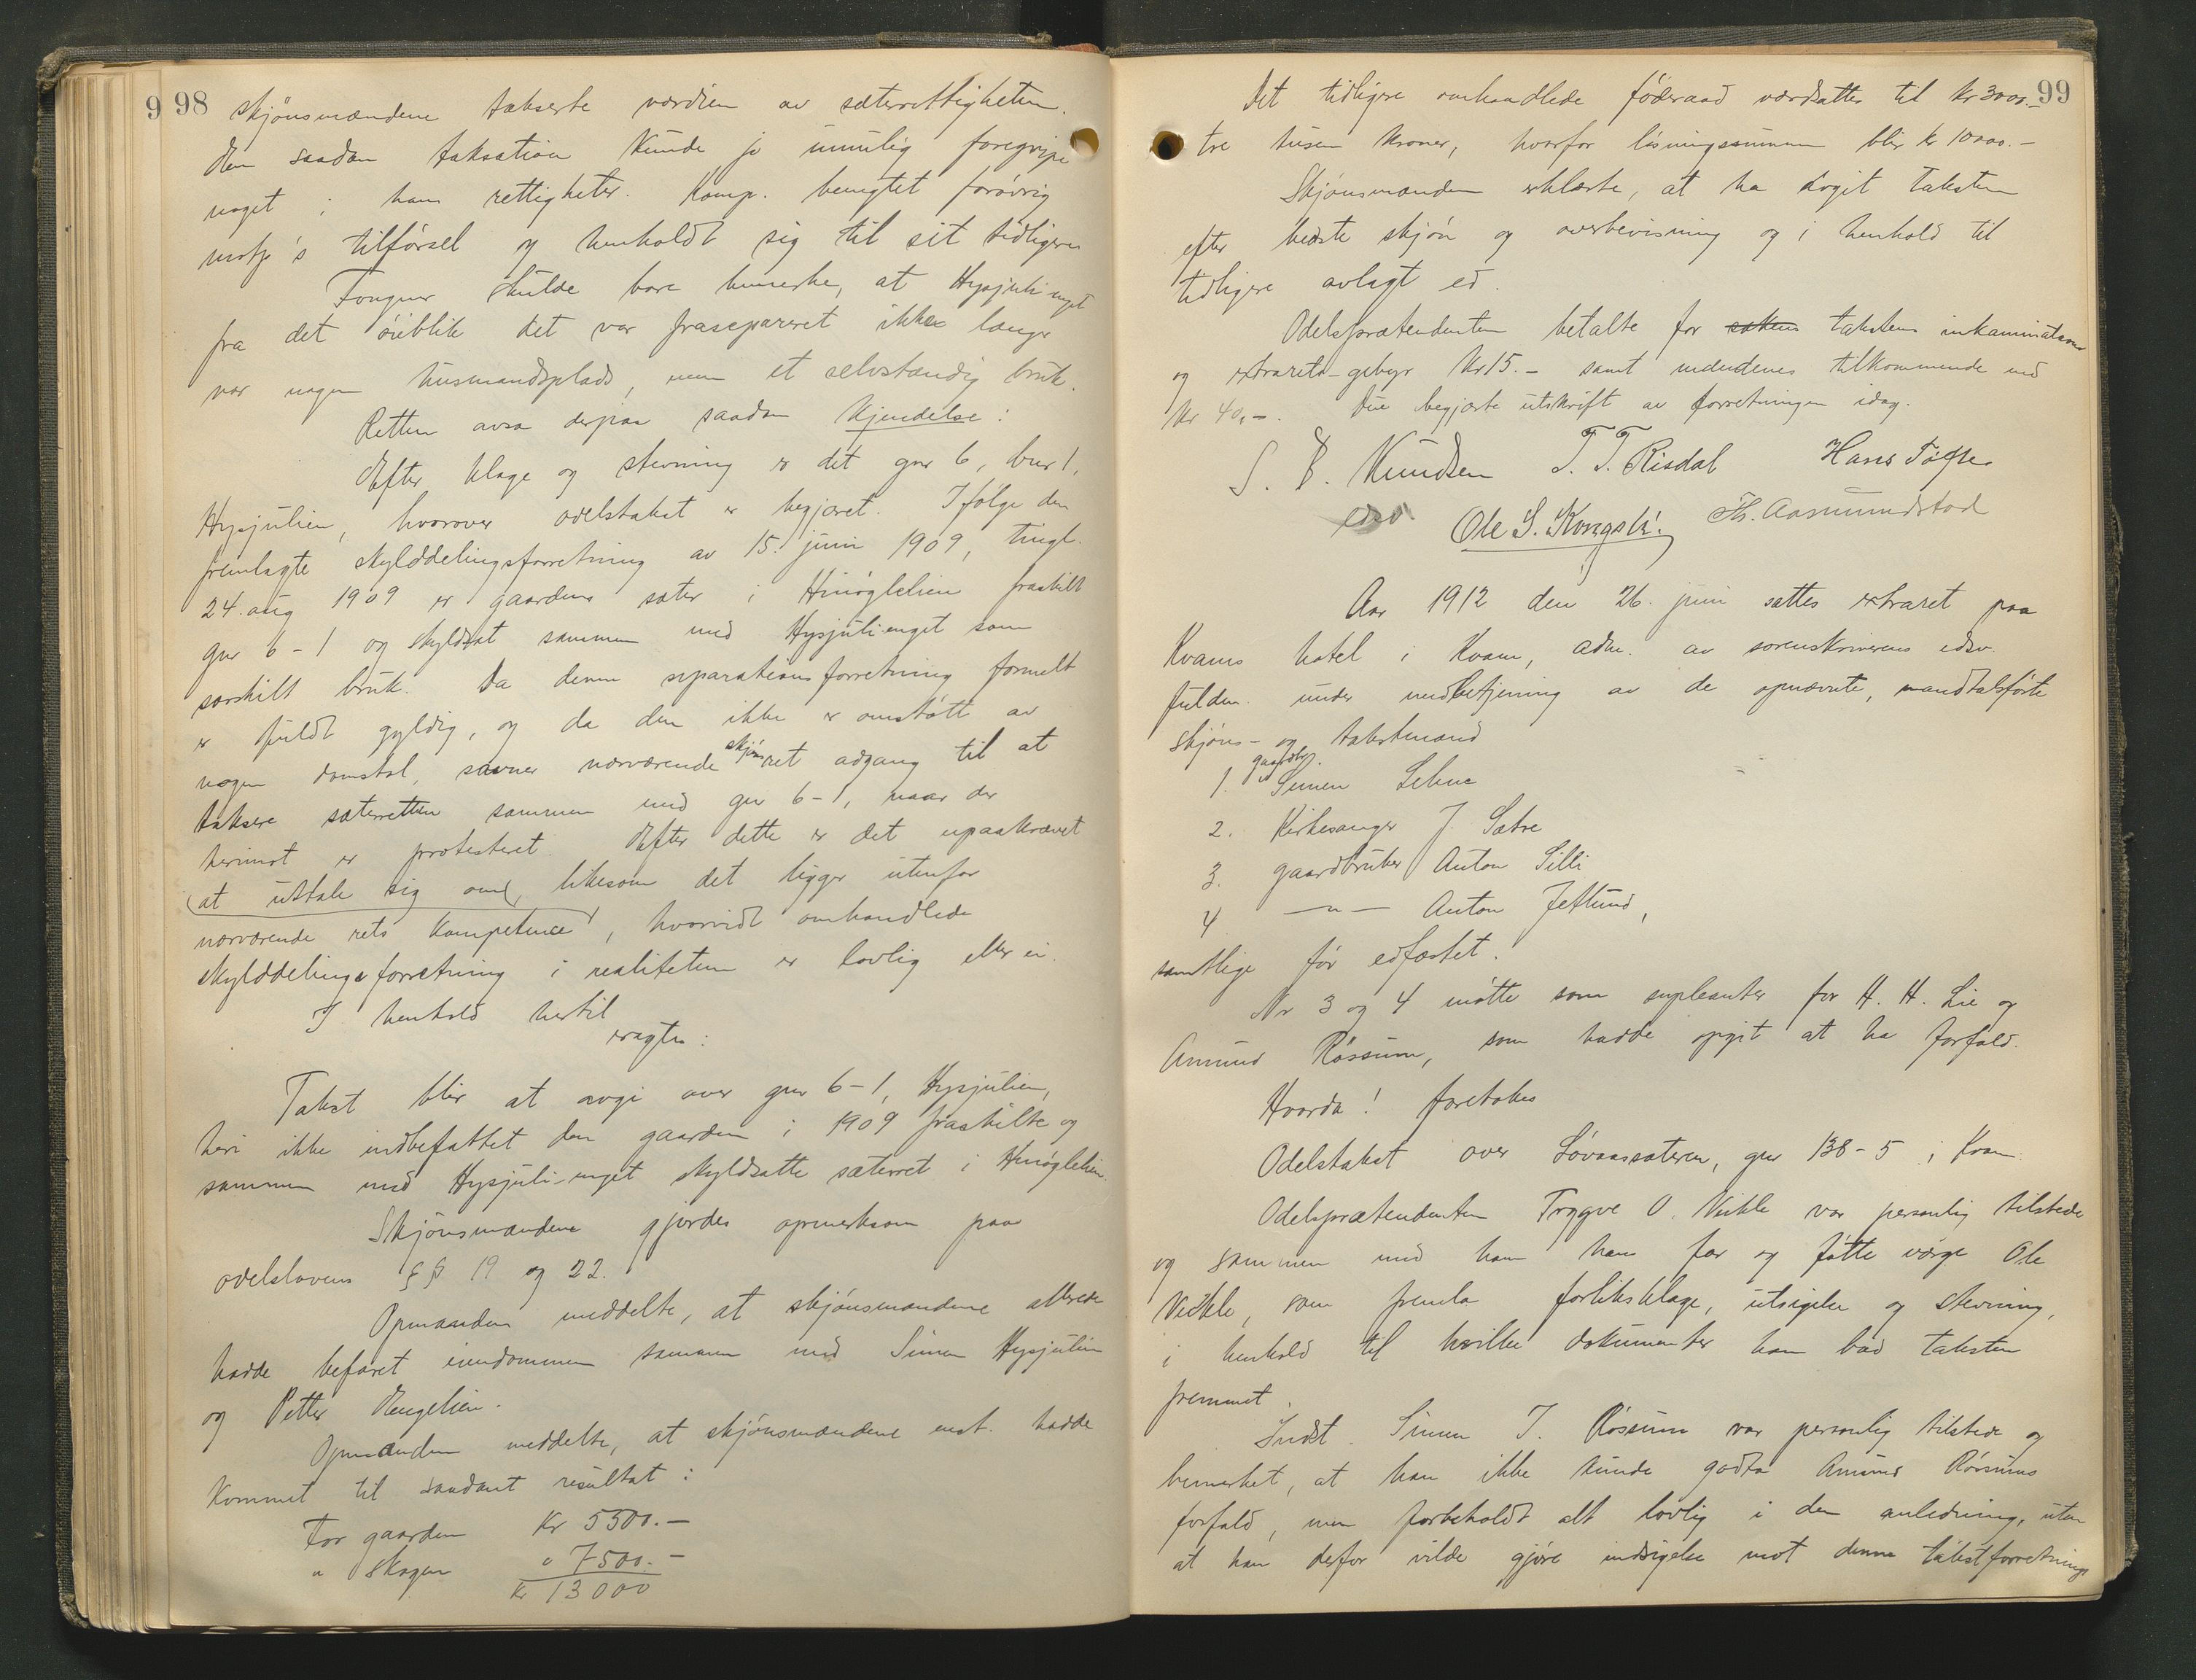 98
skjønsmændene takserte værdien av sæterrettigheten.
En saadan taksation kunde jo umulig foregripe
noget i hans rettigheter. Komp. benegtet forøvrig
motp's tilførsel og henholdt sig til sit tidligere
Fougner skulde bare bemerke, at Hysjuli-enget
fra det øieblik det var fraseparert ikke længer
var nogen husmandsplads, men et selvstændig bruk.
Retten avsa derpaa saadan Kjendelse:
Efter klage og stevning er det gnr 6, bnr 1,
Hysjulien, hvorover odelstakst er begjæret. Ifølge den
fremlagte skylddelingsforretning av 15. juni 1909, tingl.
24. aug 1909 er gaardens sæter i Hinøglelien fraskilt
gnr 6-1 og skyldsat sammen med Hysjuli-enget som
særskilt bruk. Da denne separationsforretning formelt
er fuldt gyldig, og da den ikke er omstøtt av
nogen domstol, savner nærværende skjønsret adgang til at
taksere sæterretten sammen med gnr 6-1, naar der
herimot er protesteret. Efter dette er det upaakrævet
at uttale sig om, likesom det ligger utenfor
nærværende rets kompetence, hvorvidt omhandlede
skylddelingsforretning i realiteten er lovlig eller ei.
I henhold hertil
eragtes:
Takst blir at avgi over gnr 6-1, Hysjulien,
heri ikke indbefattet den gaarden i 1909 fraskilte og
sammen med Hysjuli-enget skyldsatte sæterret i Hinøglelien.
Skjønsmændene gjordes opmerksom paa
odelslovens §§ 19 og 22.
Opmanden meddelte, at skjønsmændene allerede
hadde befaret eiendommen sammen med Simen Hysjulien
og Petter Engelien.
Opmanden meddelte, at skjønsmændene enst. hadde
kommet til saadant resultat:
For gaarden Kr 5500.-
" Skogen " 7500.-
Kr 13000
99
Det tidligere omhandlede føderaad værdsattes til kr 3000.-
tre tusen kroner, hvorfor løsningssummen blir kr 10000.-
Skjønsmændene erklærte, at ha avgit taksten
efter bedste skjøn og overbevisning og i henhold til
tidligere avlagt ed.
Odelsprætendenten betalte for sakens takstens inkamination
og extrarets-gebyr Kr 15.- samt mændenes tilkommende med
Kr 40,-. Due begjærte utskrift av forretningen idag.
S. B. Knudsen T. T. Risdal Hans Tofte
edsv. Ole S. Kongsli. Th. Aasmundstad
Aar 1912 den 26. juni sattes extraret paa
Kvams hotel i Kvam, adm. av sorenskriverens edsv.
fuldm. under medbetjening av de opnævnte, mandtalsførte
skjøns- og takstmænd
1. gaardbr. Simen Lehne
2. Kirkesanger J. Sætre
3. gaardbruker Anton Silli
4. -"- Anton Jetlund,
samtlige før edfæstet.
Nr 3 og 4 møtte som supleanter for H. H. Lie og
Amund Røssum, som hadde opgit at ha forfald.
Hvorda! foretokes
Odelstakst over Løvaassæteren, gnr 138-5 i Kvam.
Odelsprætendenten Trygve O. Vikle var personlig tilstede
og sammen med ham hans far og fødte værge Ole
Veikle, som fremla forliksklage, utsigelse og stevning,
i henhold til hvilke dokumenter han bad taksten
fremmet.
Indst. Simen J. Røssum var personlig tilstede og
bemerket, at han ikke kunde godta Amund Røssums
forfald, men forbeholdt alt lovlig i den anledning, uten
at han derfor vilde gjøre indsigelse mot denne takstforretnings